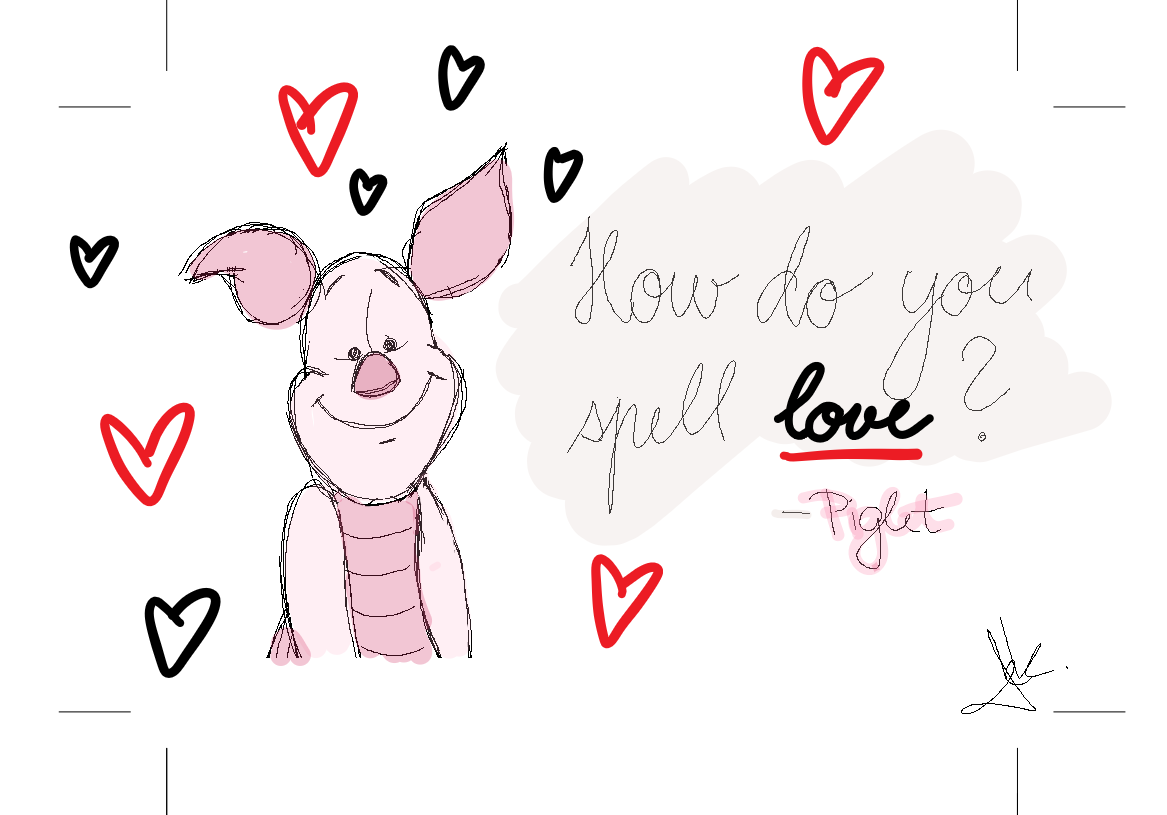 How do you
spell love?
– Piglet